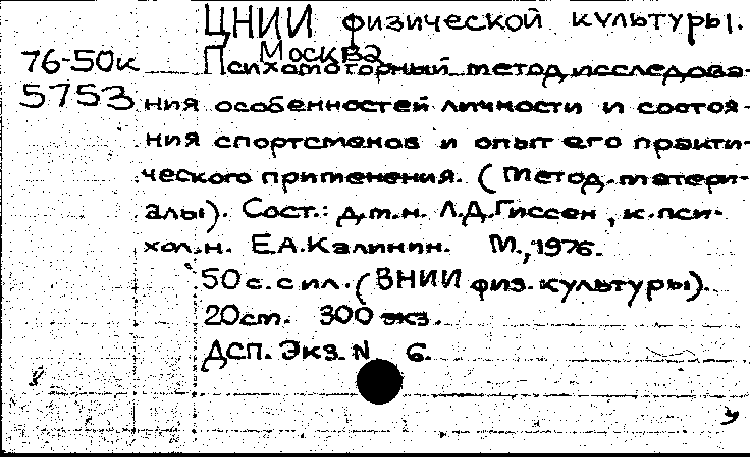 ЦНИИ физической культуры.
Москва
76-50к Психомоторный метод исследова-
5753 ния особенностей личности и состоя-
ния спортсменов и опыт его практи-
ческого применения. (Метод. матери-
алы). Сост.: д.т.н. Л.Д.Гиссен, к.пси-
хол.н. Е.А.Калинин. М., 1976.
50с. с ил. (ВНИИ физ. культуры).
20см. 300 экз.
ДСП. Экз. N 6.